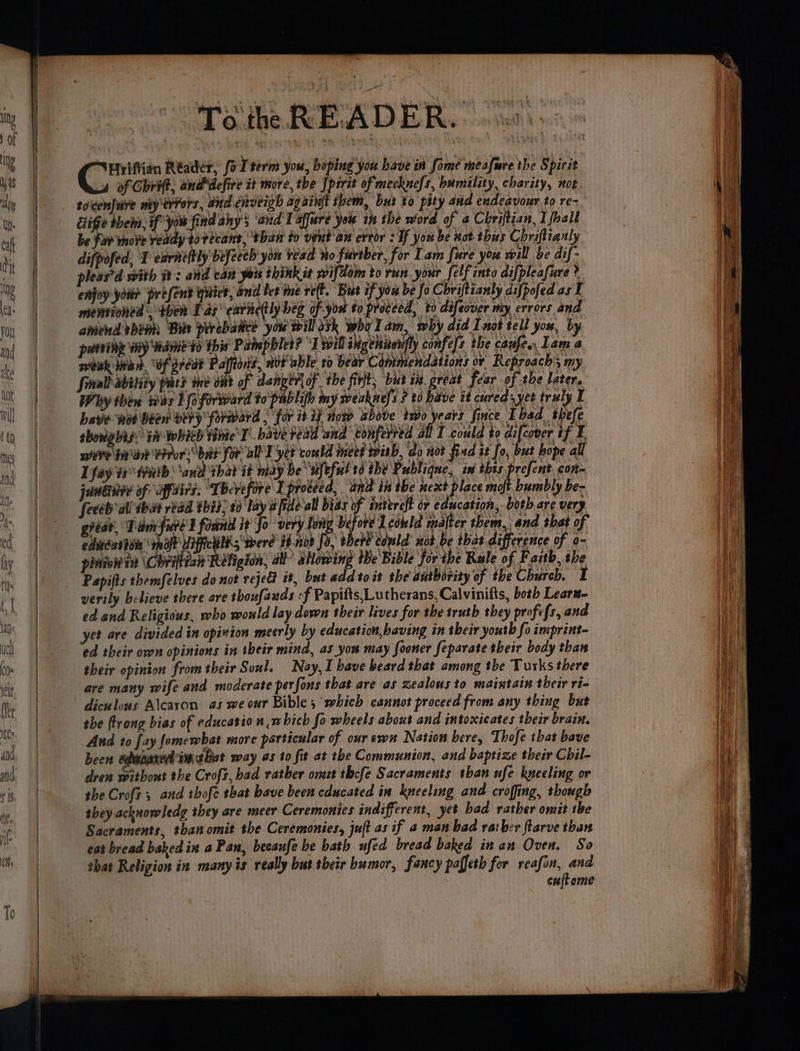 To the READER.
CHristian Reader, so I term you, hoping you have in some measure the Spirit
of Christ, and desire it more, the spirit of meekness, humility, charity, not
to censure my errors, and enveigh against them, but to pity and endeavour to re-
ctifie them, if you find any; and I assure you in the word of a Christian, I shall
be far more ready to recant, than to vent an error: If you be not thus Christianly
disposed, I earnestly beseech you read no further, for I am sure you will be dis-
pleas'd with it: and can you think it wisdom to run your self into displeasure?
enjoy your present quiet, and let me rest. But if you be so Christianly disposed as I
mentioned, then I as earnestly beg of you to proceed, to discover my errors and
amend them. But perchance you will ask who I am, why did I not tell you, by
putting my name to this Pamphlet? I will ingenuously confess the cause, I am a
weak man, of great Passions, not able to bear Commendations or Reproach; my
small ability puts me out of danger of the first, but in great fear of the later.
Why then was I so forward to publish my weakness? to have it cured, yet truly I
have not been very forward, for it is now above two years since I had these
thoughts: in which time I have read and conferred all I could to discover if I
were in an error, but for all I yet could meet with, do not find it so, but hope all
I say is truth and that it may be useful to the Publique, in this present con-
juncture of affairs. Therefore I proceed, and in the next place most humbly be-
seech all that read this, to lay aside all bias of interest or education, both are very
great, I am sure I found it so very long before I could master them, and that of
education most difficult; were it not so, there could not be that difference of o-
pinion in Christian Religion, all allowing the Bible for the Rule of Faith, the
Papists themselves do not reject it, but add to it the authority of the Church. I
verily believe there are thousands of Papists, Lutherans, Calvinists, both Learn-
ed and Religious, who would lay down their lives for the truth they profess, and
yet are divided in opinion meerly by education, having in their youth so imprint-
ed their own opinions in their mind, as you may sooner separate their body than
their opinion from their Soul. Nay, I have heard that among the Turks there
are many wise and moderate persons that are as zealous to maintain their ri-
diculous Alcaron as we our Bible; which cannot proceed from any thing but
the strong bias of education, which so wheels about and intoxicates their brain.
And to say somewhat more particular of our own Nation here, Those that have
been educated in that way as to sit at the Communion, and baptize their Chil-
dren without the Cross, had rather omit these Sacraments than use kneeling or
the Cross; and those that have been educated in kneeling and crossing, though
they acknowledg they are meer Ceremonies indifferent, yet had rather omit the
Sacraments, than omit the Ceremonies, just as if a man had rather starve than
eat bread baked in a Pan, because he hath used bread baked in an Oven. So
that Religion in many is really but their humor, fancy passeth for reason, and
custome